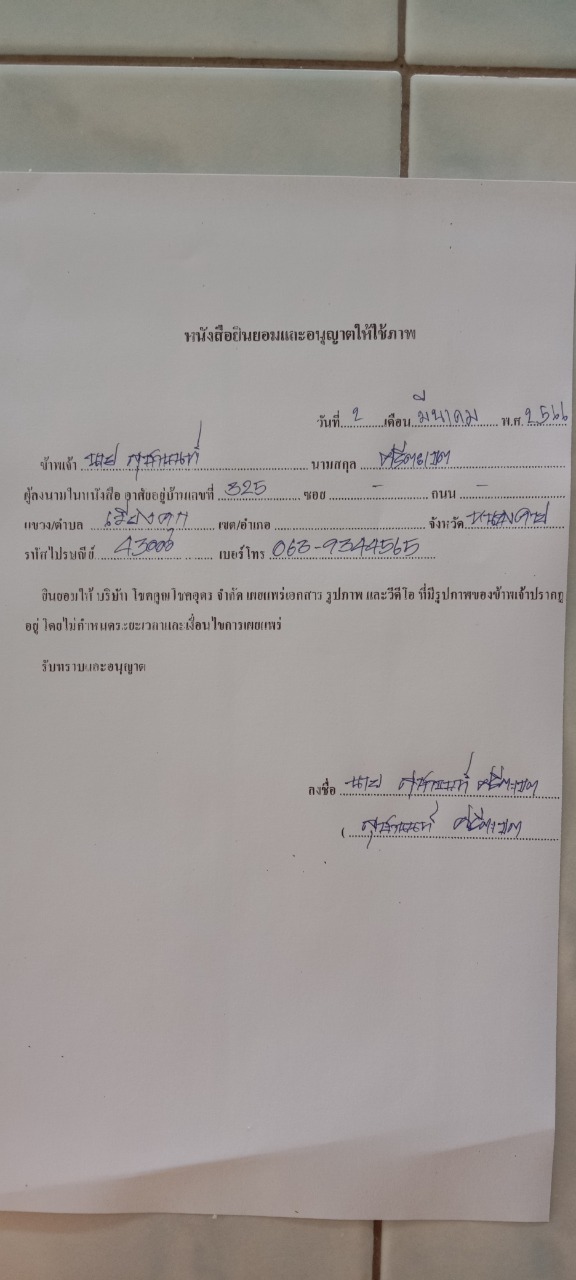 หนังสือยินยอมและอนุญาตให้ใช้ภาพ
วันที่ 2 เดือน มีนาคม พ.ศ. 2566
ข้าพเจ้า นาย นามสกุล
ผู้ลงนามในหนังสือ อาศัยอยู่บ้านเลขที่ 325 ซอย - ถนน -
แขวง/ตำบล เวียงคุก เขต/อำเภอ จังหวัด หนองคาย
รหัสไปรษณีย์ 43000 เบอร์โทร 063-9344565
ยินยอมให้ บริษัท โชคคูณโชคอุดร จำกัด เผยแพร่เอกสาร รูปภาพ และวีดีโอ ที่มีรูปภาพของข้าพเจ้าปรากฏ
อยู่ โดยไม่กำหนดระยะเวลาและเงื่อนไขการเผยแพร่
รับทราบและอนุญาต
ลงชื่อ นาย
(